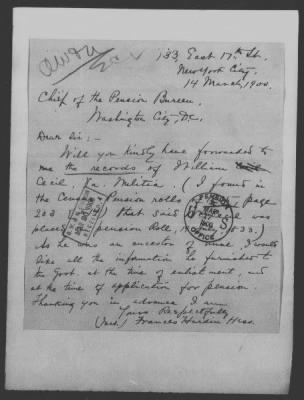 133 East 17th St.
New York City,
14 March, 1900.
Chief of the Pension Bureau,
Washington City, D.C.
Dear Sir:-
Will you kindly have forwarded to
me the records of William
Cecil, Va. Militia. (I found in
the Census Pension rolls page
203 ) that said was
placed Pension Roll, 1833.)
As he was an ancestor of mine, I would
like all the information he furnished to
the Govt. at the time of enlistment, and
at the time of application for pension.
Thanking you in advance I am
Yours Respectfully
(Mrs.) Frances Hardin Hess.
PENSION
OFFICE